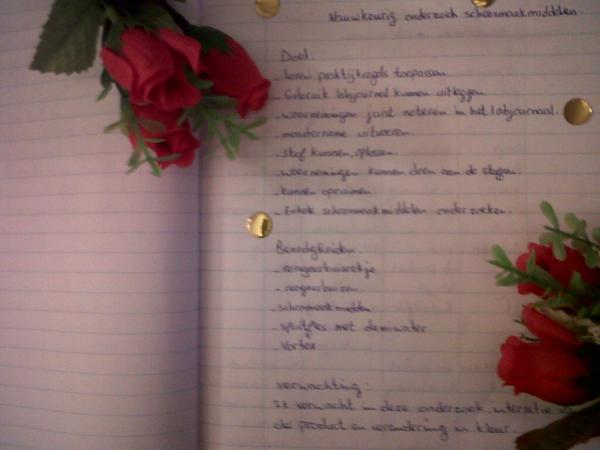 Nauwkeurig onderzoek schoonmaakmiddelen
Doel:
- leren praktijkregels toepassen
- Gebruik labjournaal kunnen uitleggen
- waarnemingen juist noteren in het labjournaal.
- monstername uitvoeren.
- stof kunnen oplossen.
- waarnemingen kunnen doen aan de stoffen.
- kunnen opruimen.
- Enkele schoonmaakmiddelen onderzoeken.
Benodigdheden.
- reageerbuisrekje
- reageerbuizen.
- schoonmaakmiddelen
- spuitfles met demiwater
- Vortex
verwachting:
Ik verwacht in deze onderzoek interactie
de product en verandering in kleur.